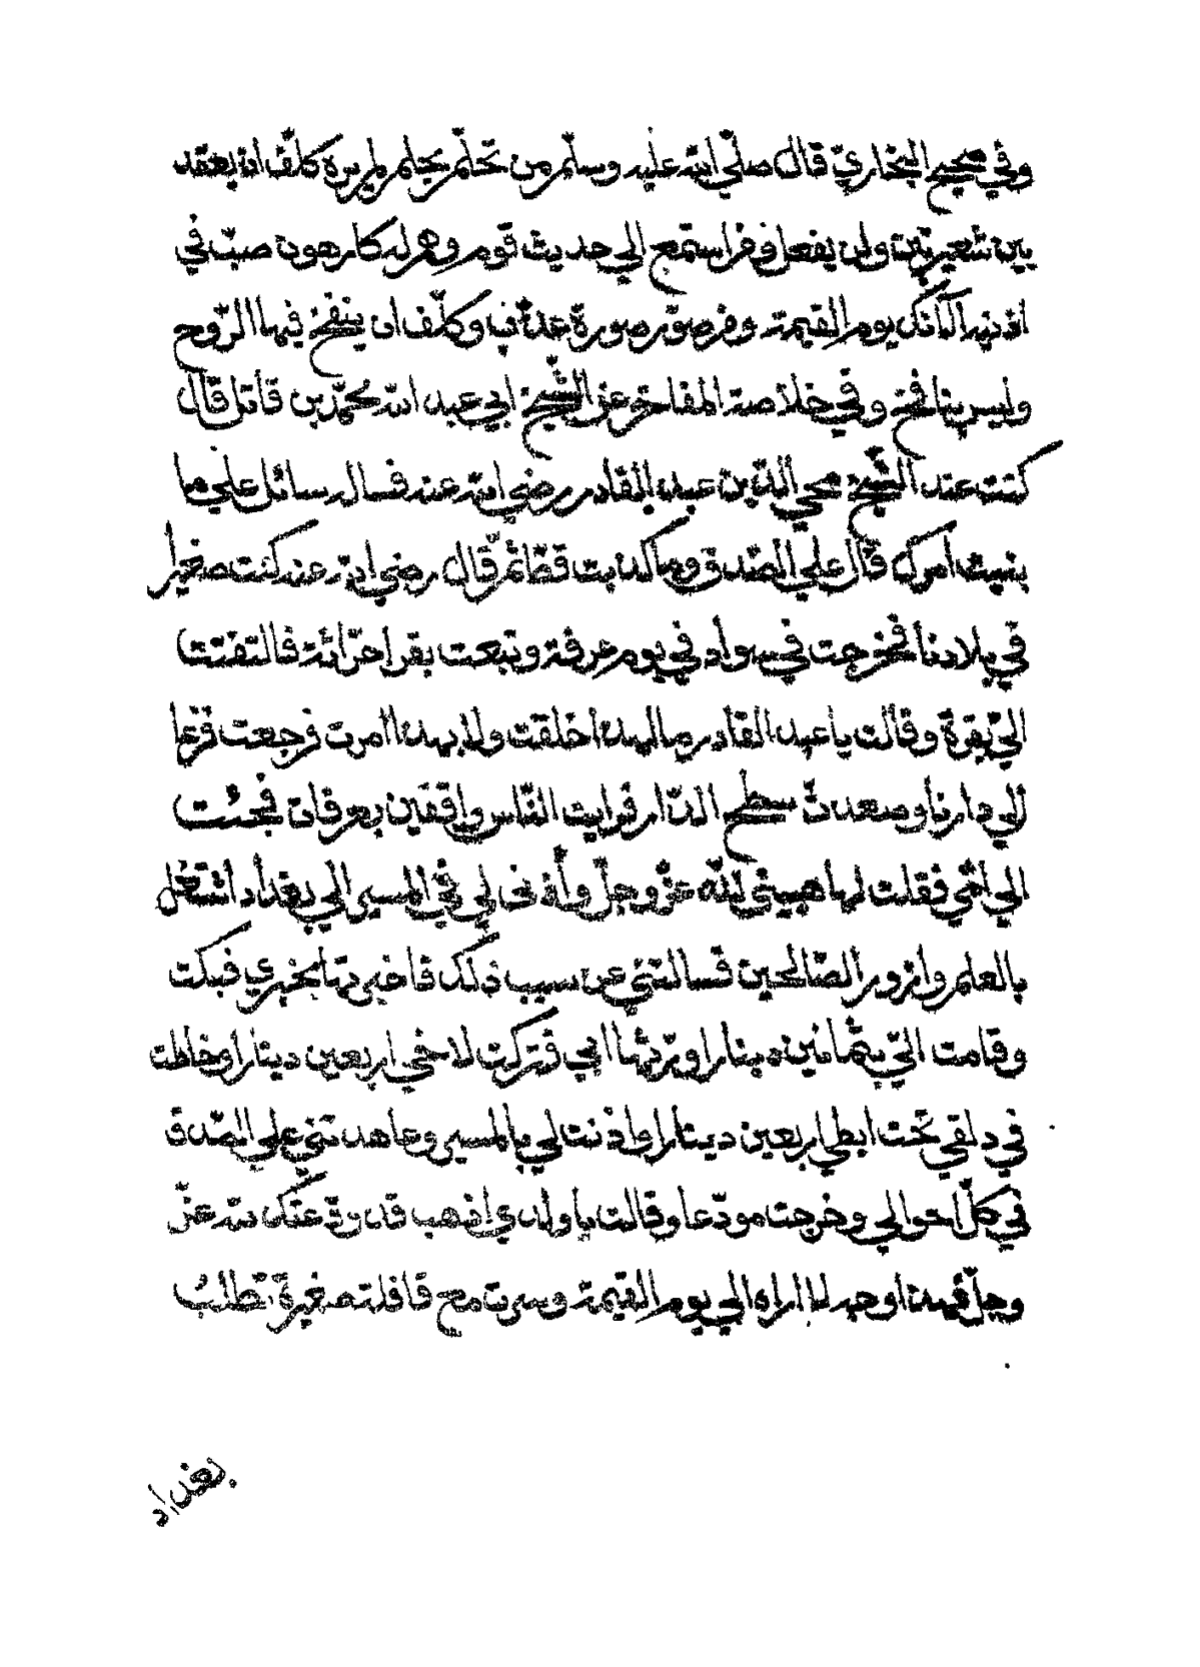 وفي صحيح البخاريّ قال صلّي الله عليه وسلّم من تحلّم بحلم لم يره كلّف ان يعقد
بين شعيرتين ولن يفعل ومن استمع الي حديث قوم وهم له كارهون صبّ في
اذنيه الآنك يوم القيمة ومن صوّر صورة عذّب وكلّف ان ينفخ فيها الرّوح
وليس بنافخ وفي خلاصة المفاخر عن الشّيخ ابي عبد الله محمّد بن قائل قال
كنت عند الشّيخ محي الدّين عبد القادر رضي الله عنه فساله سائل علي ما
بنيت أمرك قال علي الصّدق وما كذبت قطّ ثمّ قال رضي الله عنه كنت صغيرا
في بلادنا فخرجت في سواد في يوم عرفة وتبعت بقرا حرّاثة فالتفتت
اليّ بقرة وقالت يا عبد القادر ما لهذا خلقت ولا بهذا امرت فرجعت فزعا
الي دارنا وصعدت سطح الدّار فرايت النّاس واقفين بعرفات فجئت
الي امّي فقلت لها هبيني لله عزّ وجلّ وأذني لي في المسير الي بغداد اشتغل
بالعلم وازور الصّالحين فسالتني عن سبب ذلك فاخبرتها بخبري فبكت
وقامت اليّ بثمانين دينارا ورّثها ابي فتركت لاخي اربعين دينارا وخاطت
في دلقي تحت ابطي اربعين دينارا واذنت لي بالمسير وعاهدتني علي الصّدق
في كلّ احوالي وخرجت مودّعا وقالت يا ولدي اذهب قد خرجت عنك لله عزّ
وجلّ فهذا وجه لا اراه الي يوم القيمة وسرت مع قافلة صغيرة تطلب
بغداد